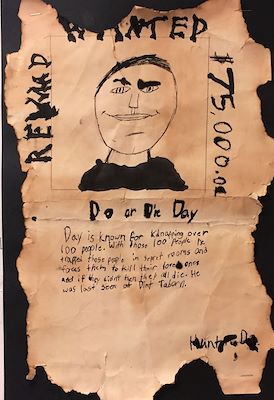 WANTED
REWARD
$75,000.00
Do or Die Day
Day is known for kidnapping over
100 people. With those 100 people he
trapped those people in secret rooms and
forces them to kill their loved ones
and if they didnt then they all die. He
was last seen at